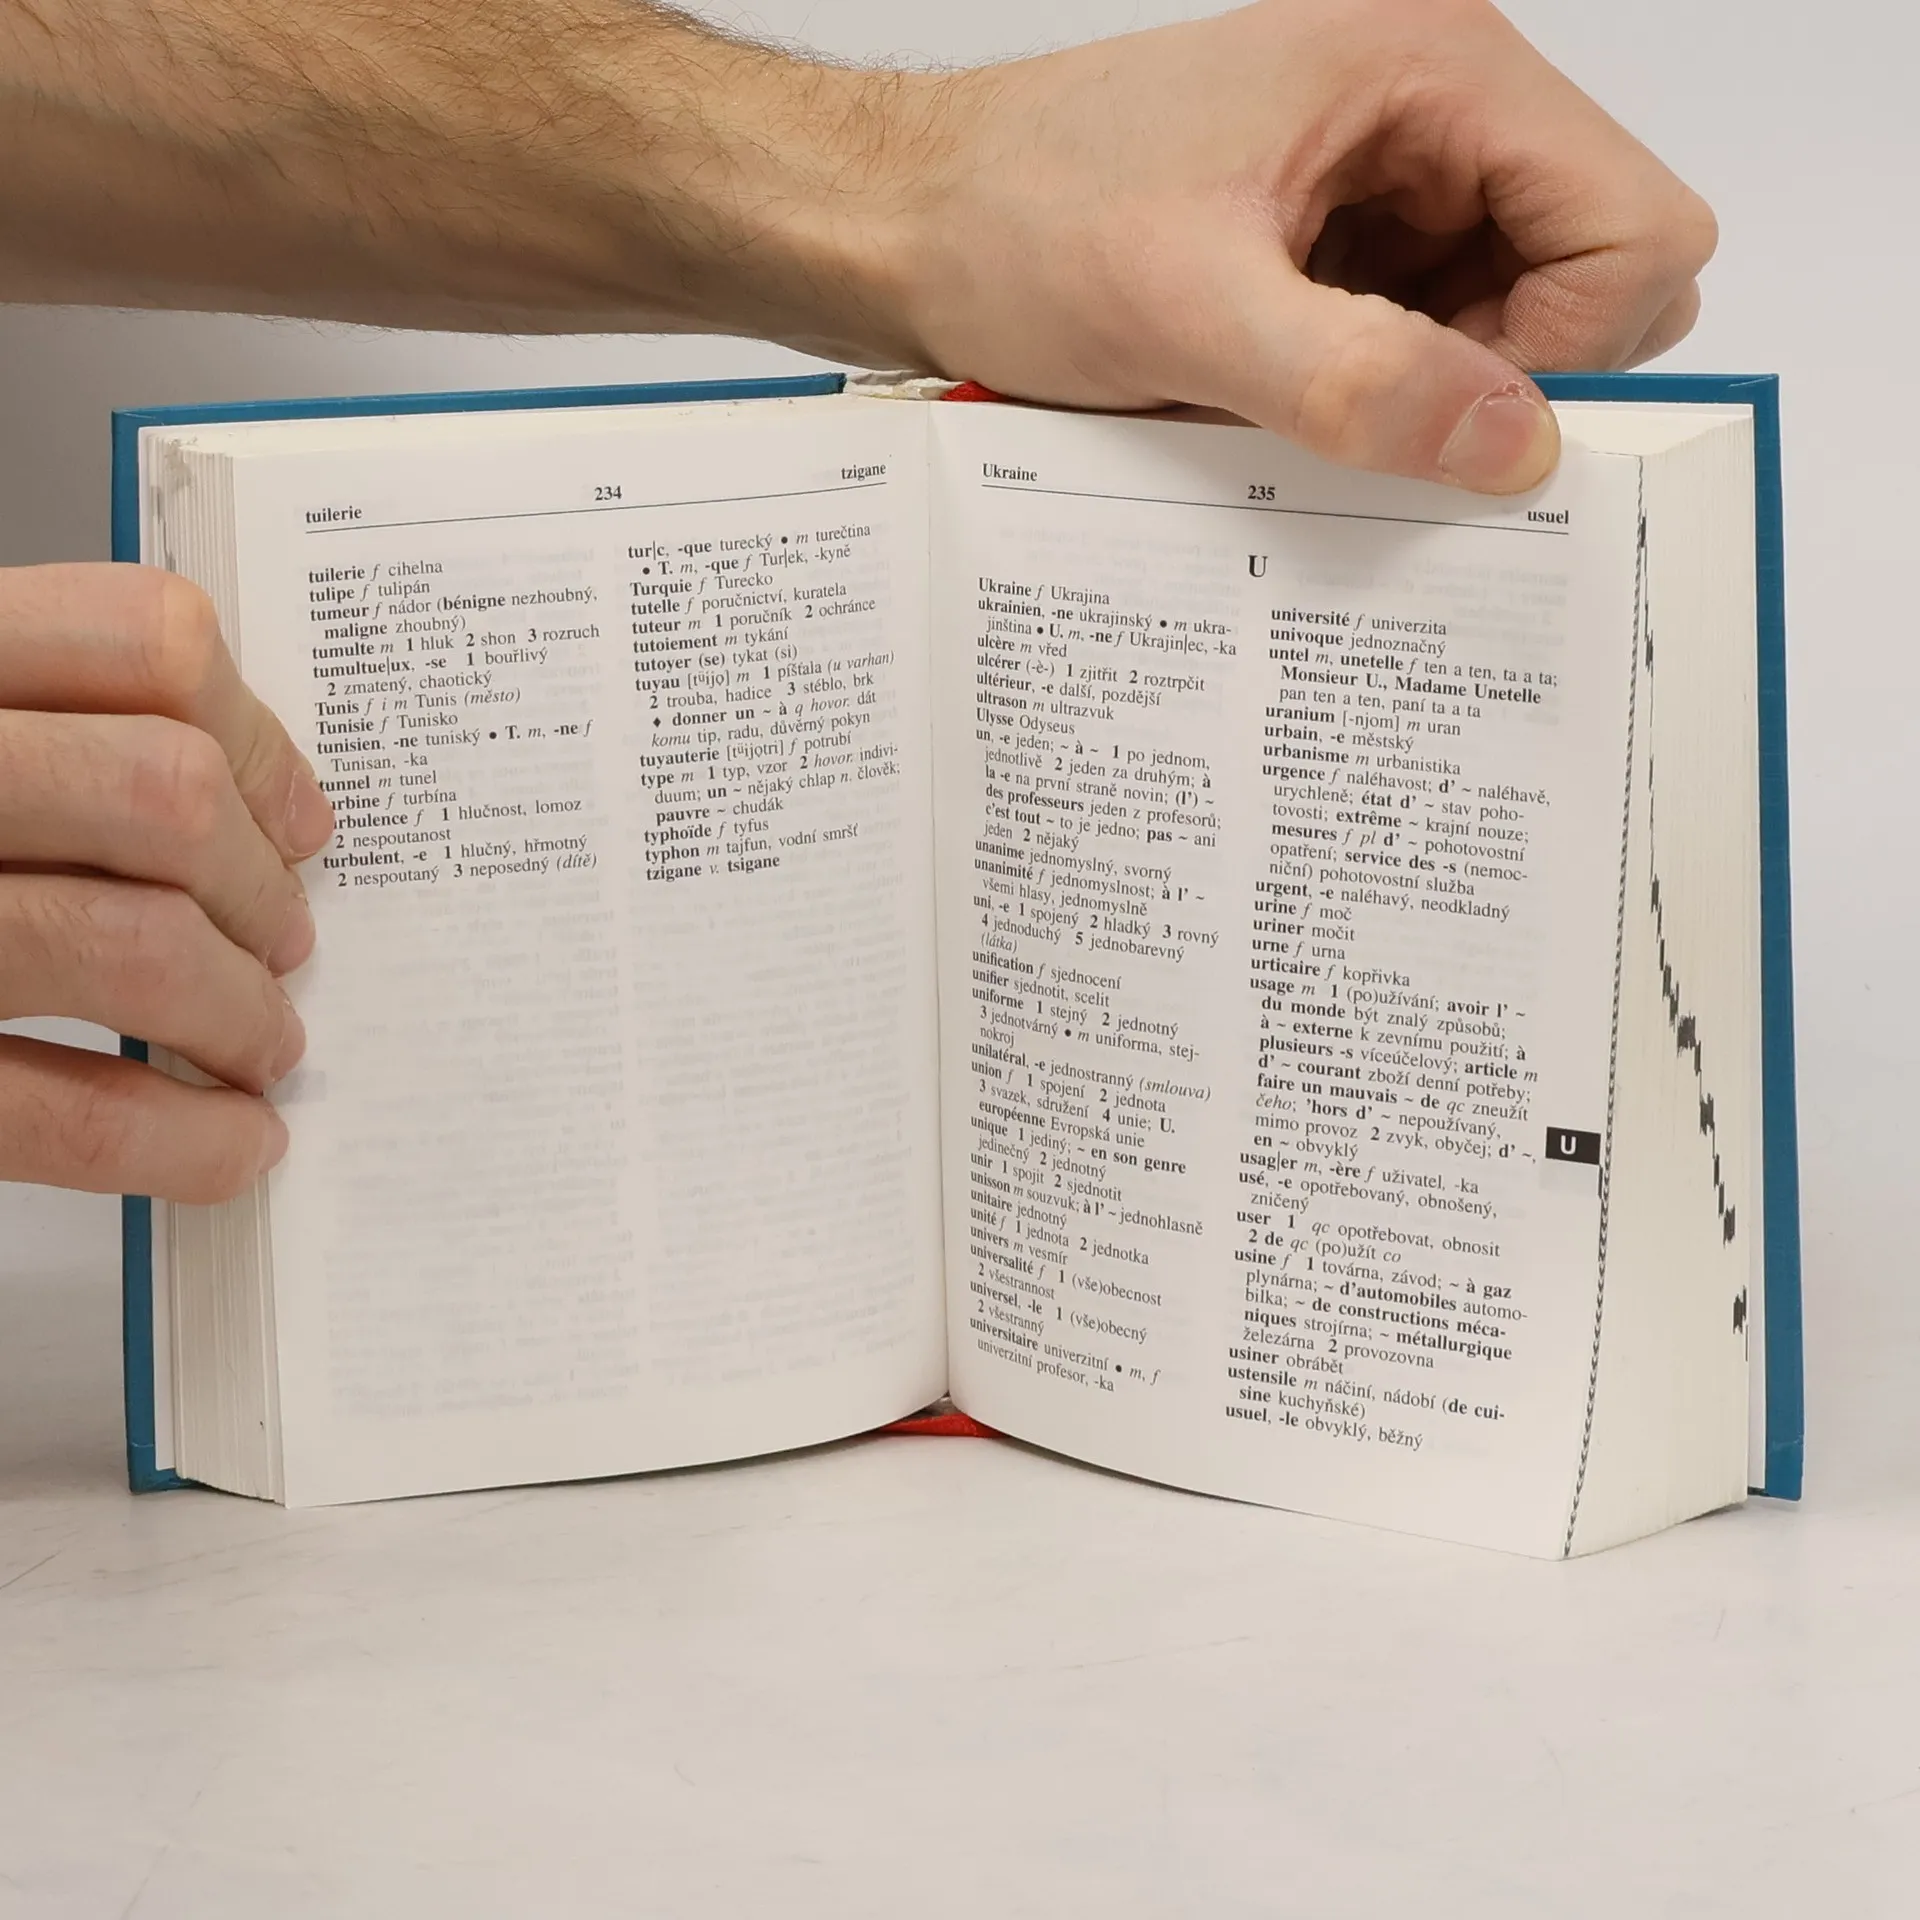 tuilerie
234
tzigane
tuilerie f cihelna
tulipe f tulipán
tumeur f nádor (bénigne nezhoubný,
maligne zhoubný)
tumulte m 1 hluk 2 shon 3 rozruch
tumultue|ux, -se 1 bouřlivý
2 zmatený, chaotický
Tunis f i m Tunis (město)
Tunisie f Tunisko
tunisien, -ne tuniský • T. m, -ne f
Tunisan, -ka
tunnel m tunel
urbine f turbína
rbulence f 1 hlučnost, lomoz
2 nespoutanost
turbulent, -e 1 hlučný, hřmotný
2 nespoutaný 3 neposedný (dítě)
tur|c, -que turecký • m turečtina
• T. m, -que f Tur|ek, -kyně
Turquie f Turecko
tutelle f poručnictví, kuratela
tuteur m 1 poručník 2 ochránce
tutoiement m tykání
tutoyer (se) tykat (si)
tuyau m 1 píšťala (u varhan)
2 trouba, hadice 3 stéblo, brk
♦ donner un ~ à q hovor. dát
komu tip, radu, důvěrný pokyn
tuyauterie f potrubí
type m 1 typ, vzor 2 hovor. indivi-
duum; un ~ nějaký chlap n. člověk;
pauvre ~ chudák
typhoïde f tyfus
typhon m tajfun, vodní smršť
tzigane v. tsigane
Ukraine
235
usuel
U
Ukraine f Ukrajina
ukrainien, -ne ukrajinský • m ukra-
jinština • U. m, -ne f Ukrajin|ec, -ka
ulcère m vřed
ulcérer (-è-) 1 zjitřit 2 roztrpčit
ultérieur, -e další, pozdější
ultrason m ultrazvuk
Ulysse Odyseus
un, -e jeden; ~ à ~ 1 po jednom,
jednotlivě 2 jeden za druhým; à
la -e na první straně novin; (l') ~
des professeurs jeden z profesorů;
c'est tout ~ to je jedno; pas ~ ani
jeden 2 nějaký
unanime jednomyslný, svorný
unanimité f jednomyslnost; à l' ~
všemi hlasy, jednomyslně
uni, -e 1 spojený 2 hladký 3 rovný
4 jednoduchý 5 jednobarevný
(látka)
unification f sjednocení
unifier sjednotit, scelit
uniforme 1 stejný 2 jednotný
3 jednotvárný • m uniforma, stej-
nokroj
unilatéral, -e jednostranný (smlouva)
union f 1 spojení 2 jednota
3 svazek, sdružení 4 unie; U.
européenne Evropská unie
unique 1 jediný; ~ en son genre
jedinečný 2 jednotný
unir 1 spojit 2 sjednotit
unisson m souzvuk; à l' ~ jednohlasně
unitaire jednotný
unité f 1 jednota 2 jednotka
univers m vesmír
universalité f 1 (vše)obecnost
2 všestrannost
universel, -le 1 (vše)obecný
2 všestranný
universitaire univerzitní • m, f
univerzitní profesor, -ka
université f univerzita
univoque jednoznačný
untel m, unetelle f ten a ten, ta a ta;
Monsieur U., Madame Unetelle
pan ten a ten, paní ta a ta
uranium [-njom] m uran
urbain, -e městský
urbanisme m urbanistika
urgence f naléhavost; d' ~ naléhavě,
urychleně; état d' ~ stav poho-
tovosti; extrême ~ krajní nouze;
mesures f pl d' ~ pohotovostní
opatření; service des -s (nemoc-
niční) pohotovostní služba
urgent, -e naléhavý, neodkladný
urine f moč
uriner močit
urne f urna
urticaire f kopřivka
usage m 1 (po)užívání; avoir l' ~
du monde být znalý způsobů;
à ~ externe k zevnímu použití; à
plusieurs -s víceúčelový; article m
d' ~ courant zboží denní potřeby;
faire un mauvais ~ de qc zneužít
čeho; 'hors d' ~ nepoužívaný,
mimo provoz 2 zvyk, obyčej; d' ~,
en ~ obvyklý
usag|er m, -ère f uživatel, -ka
usé, -e opotřebovaný, obnošený,
zničený
user 1 qc opotřebovat, obnosit
2 de qc (po)užít co
usine f 1 továrna, závod; ~ à gaz
plynárna; ~ d'automobiles automo-
bilka; ~ de constructions méca-
niques strojírna; ~ métallurgique
železárna 2 provozovna
usiner obrábět
ustensile m náčiní, nádobí (de cui-
sine kuchyňské)
usuel, -le obvyklý, běžný
U